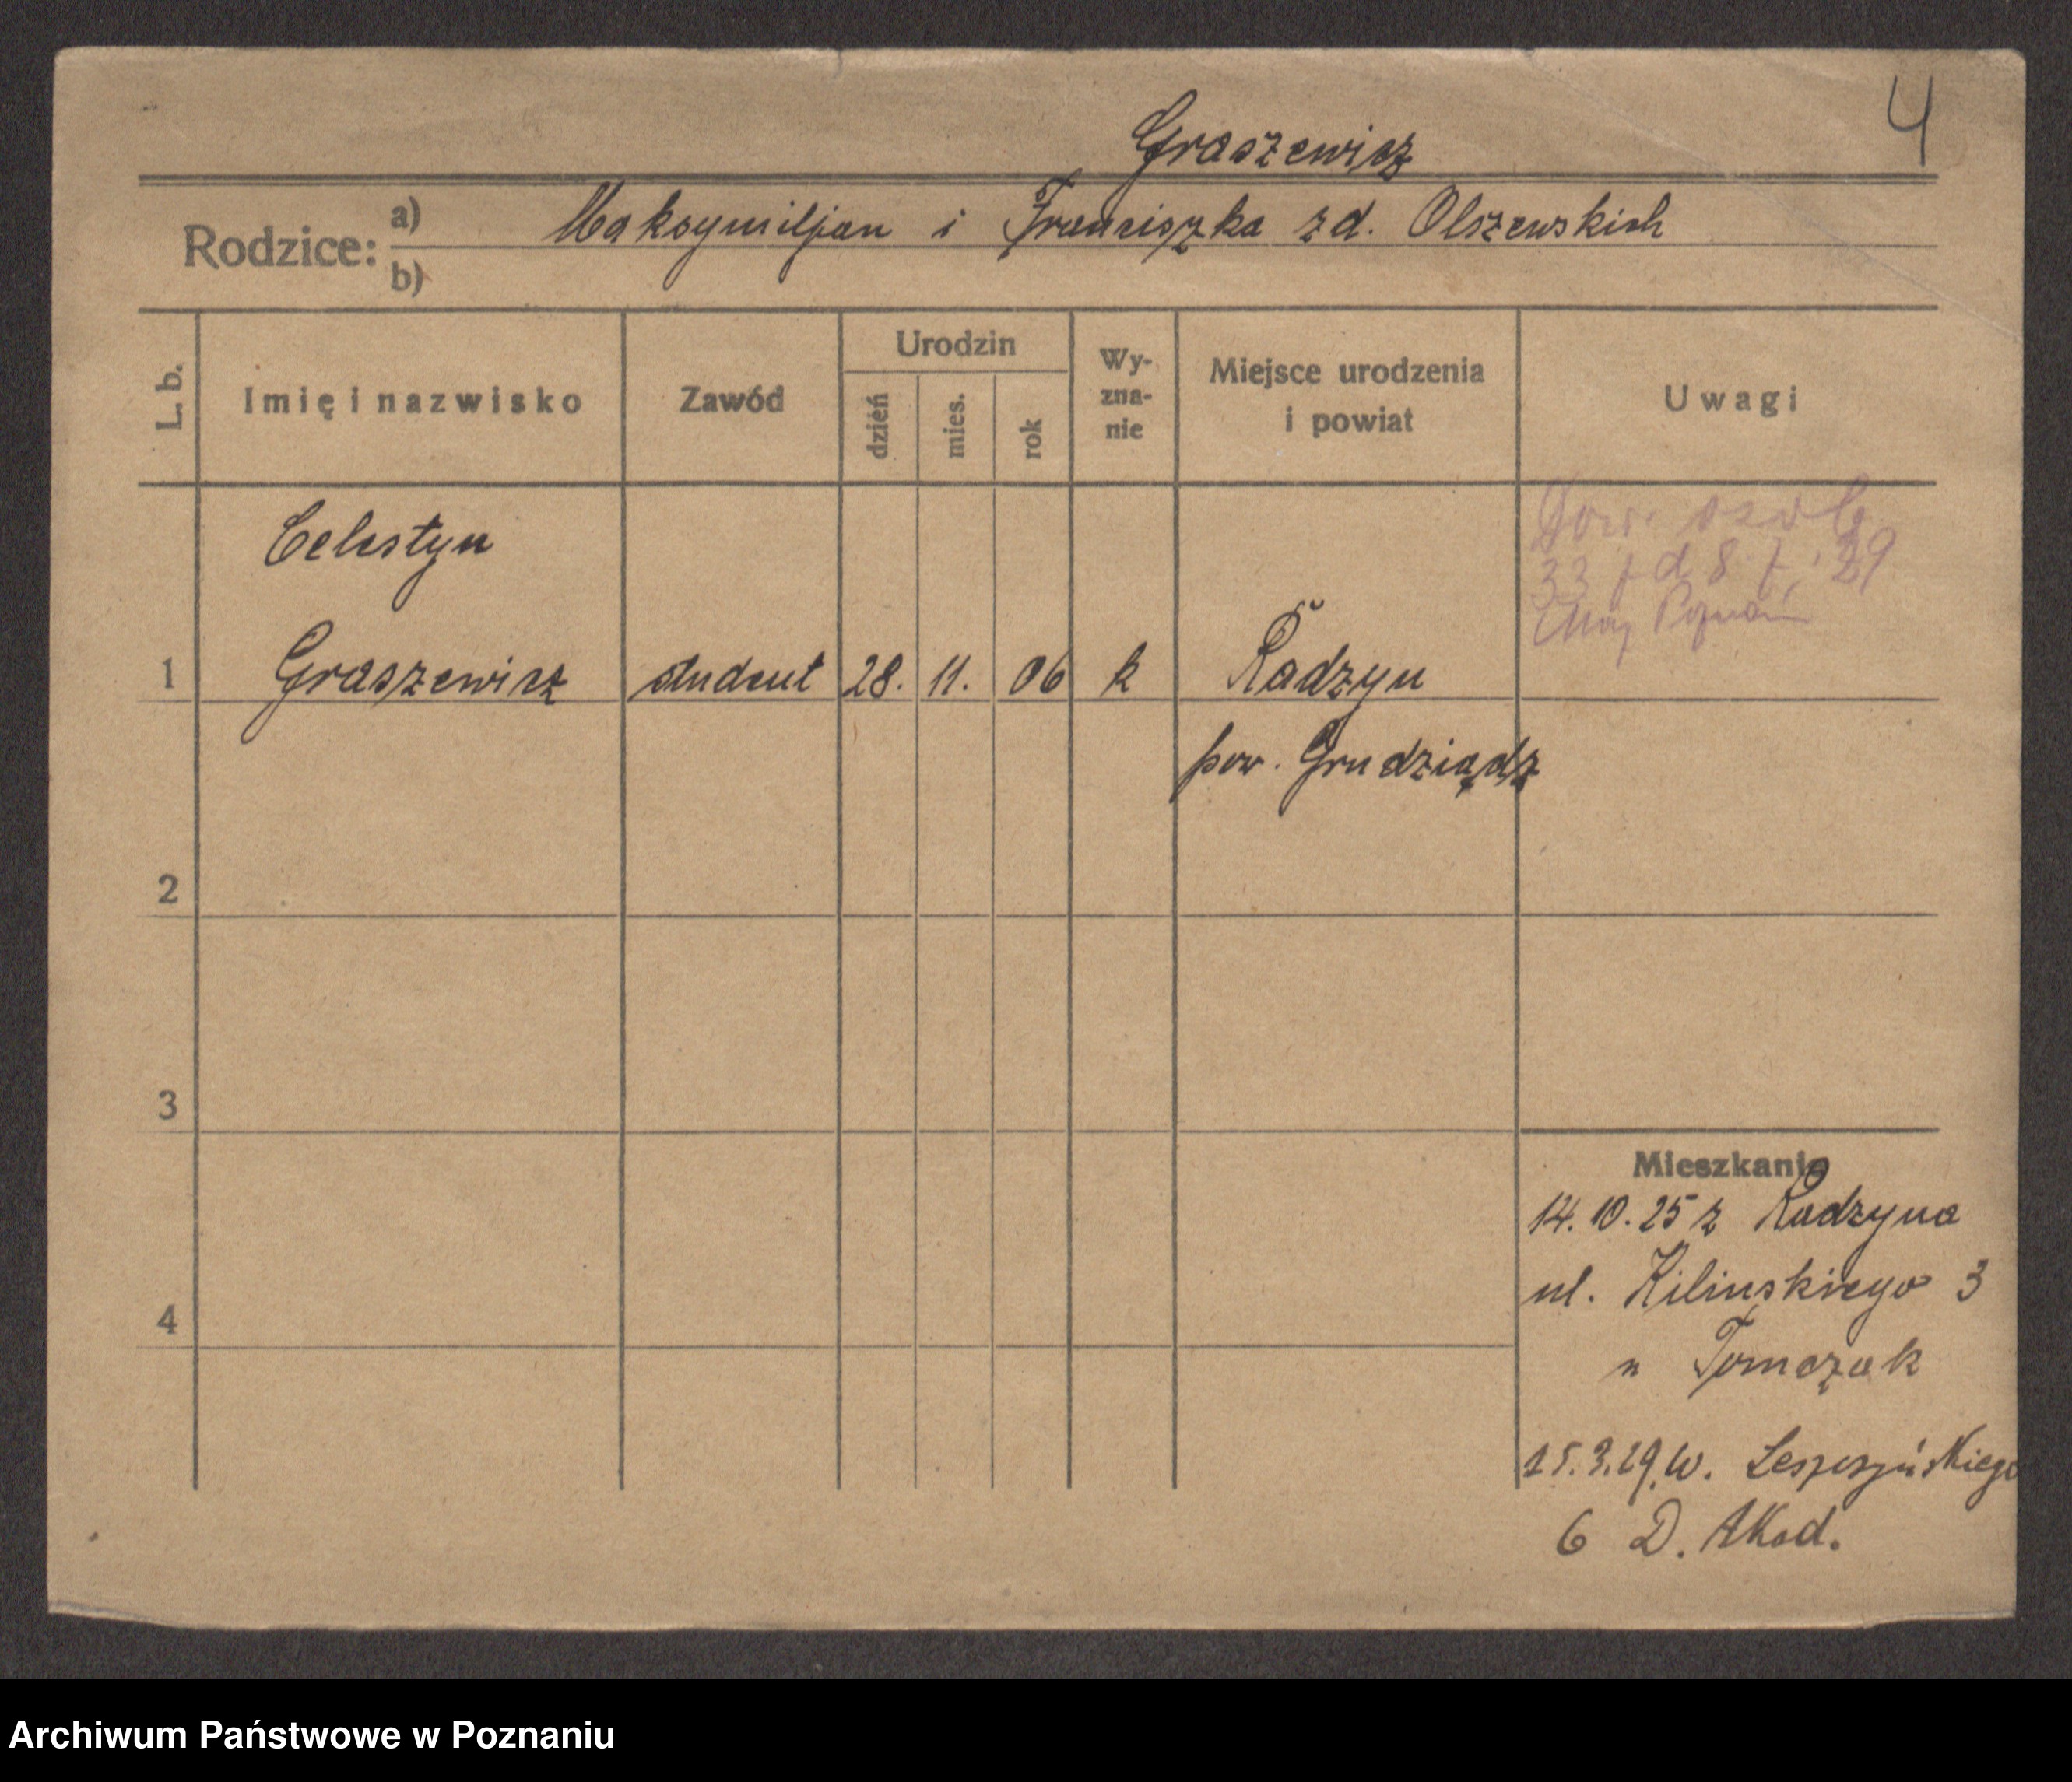 4
Graszewicz
Rodzice: a) Maksymiljan i Franciszka zd. Olszewskich
b)
L. b. Imię i nazwisko Zawód Urodzin dzień mies. rok Wy-zna-nie Miejsce urodzenia i powiat Uwagi
Dow. osob.
33 8 29
Mag Poznań
Celestyn
1 Graszewicz student 28. 11. 06 k Radzyn
pow. Grudziądz
2
3
4
Mieszkanie
14.10.25 z Radzyna
ul. Kilinskiego 3
u Tomczak
15.3.29. W. Leszczyńskiego
6 D. Akad.
Archiwum Państwowe w Poznaniu